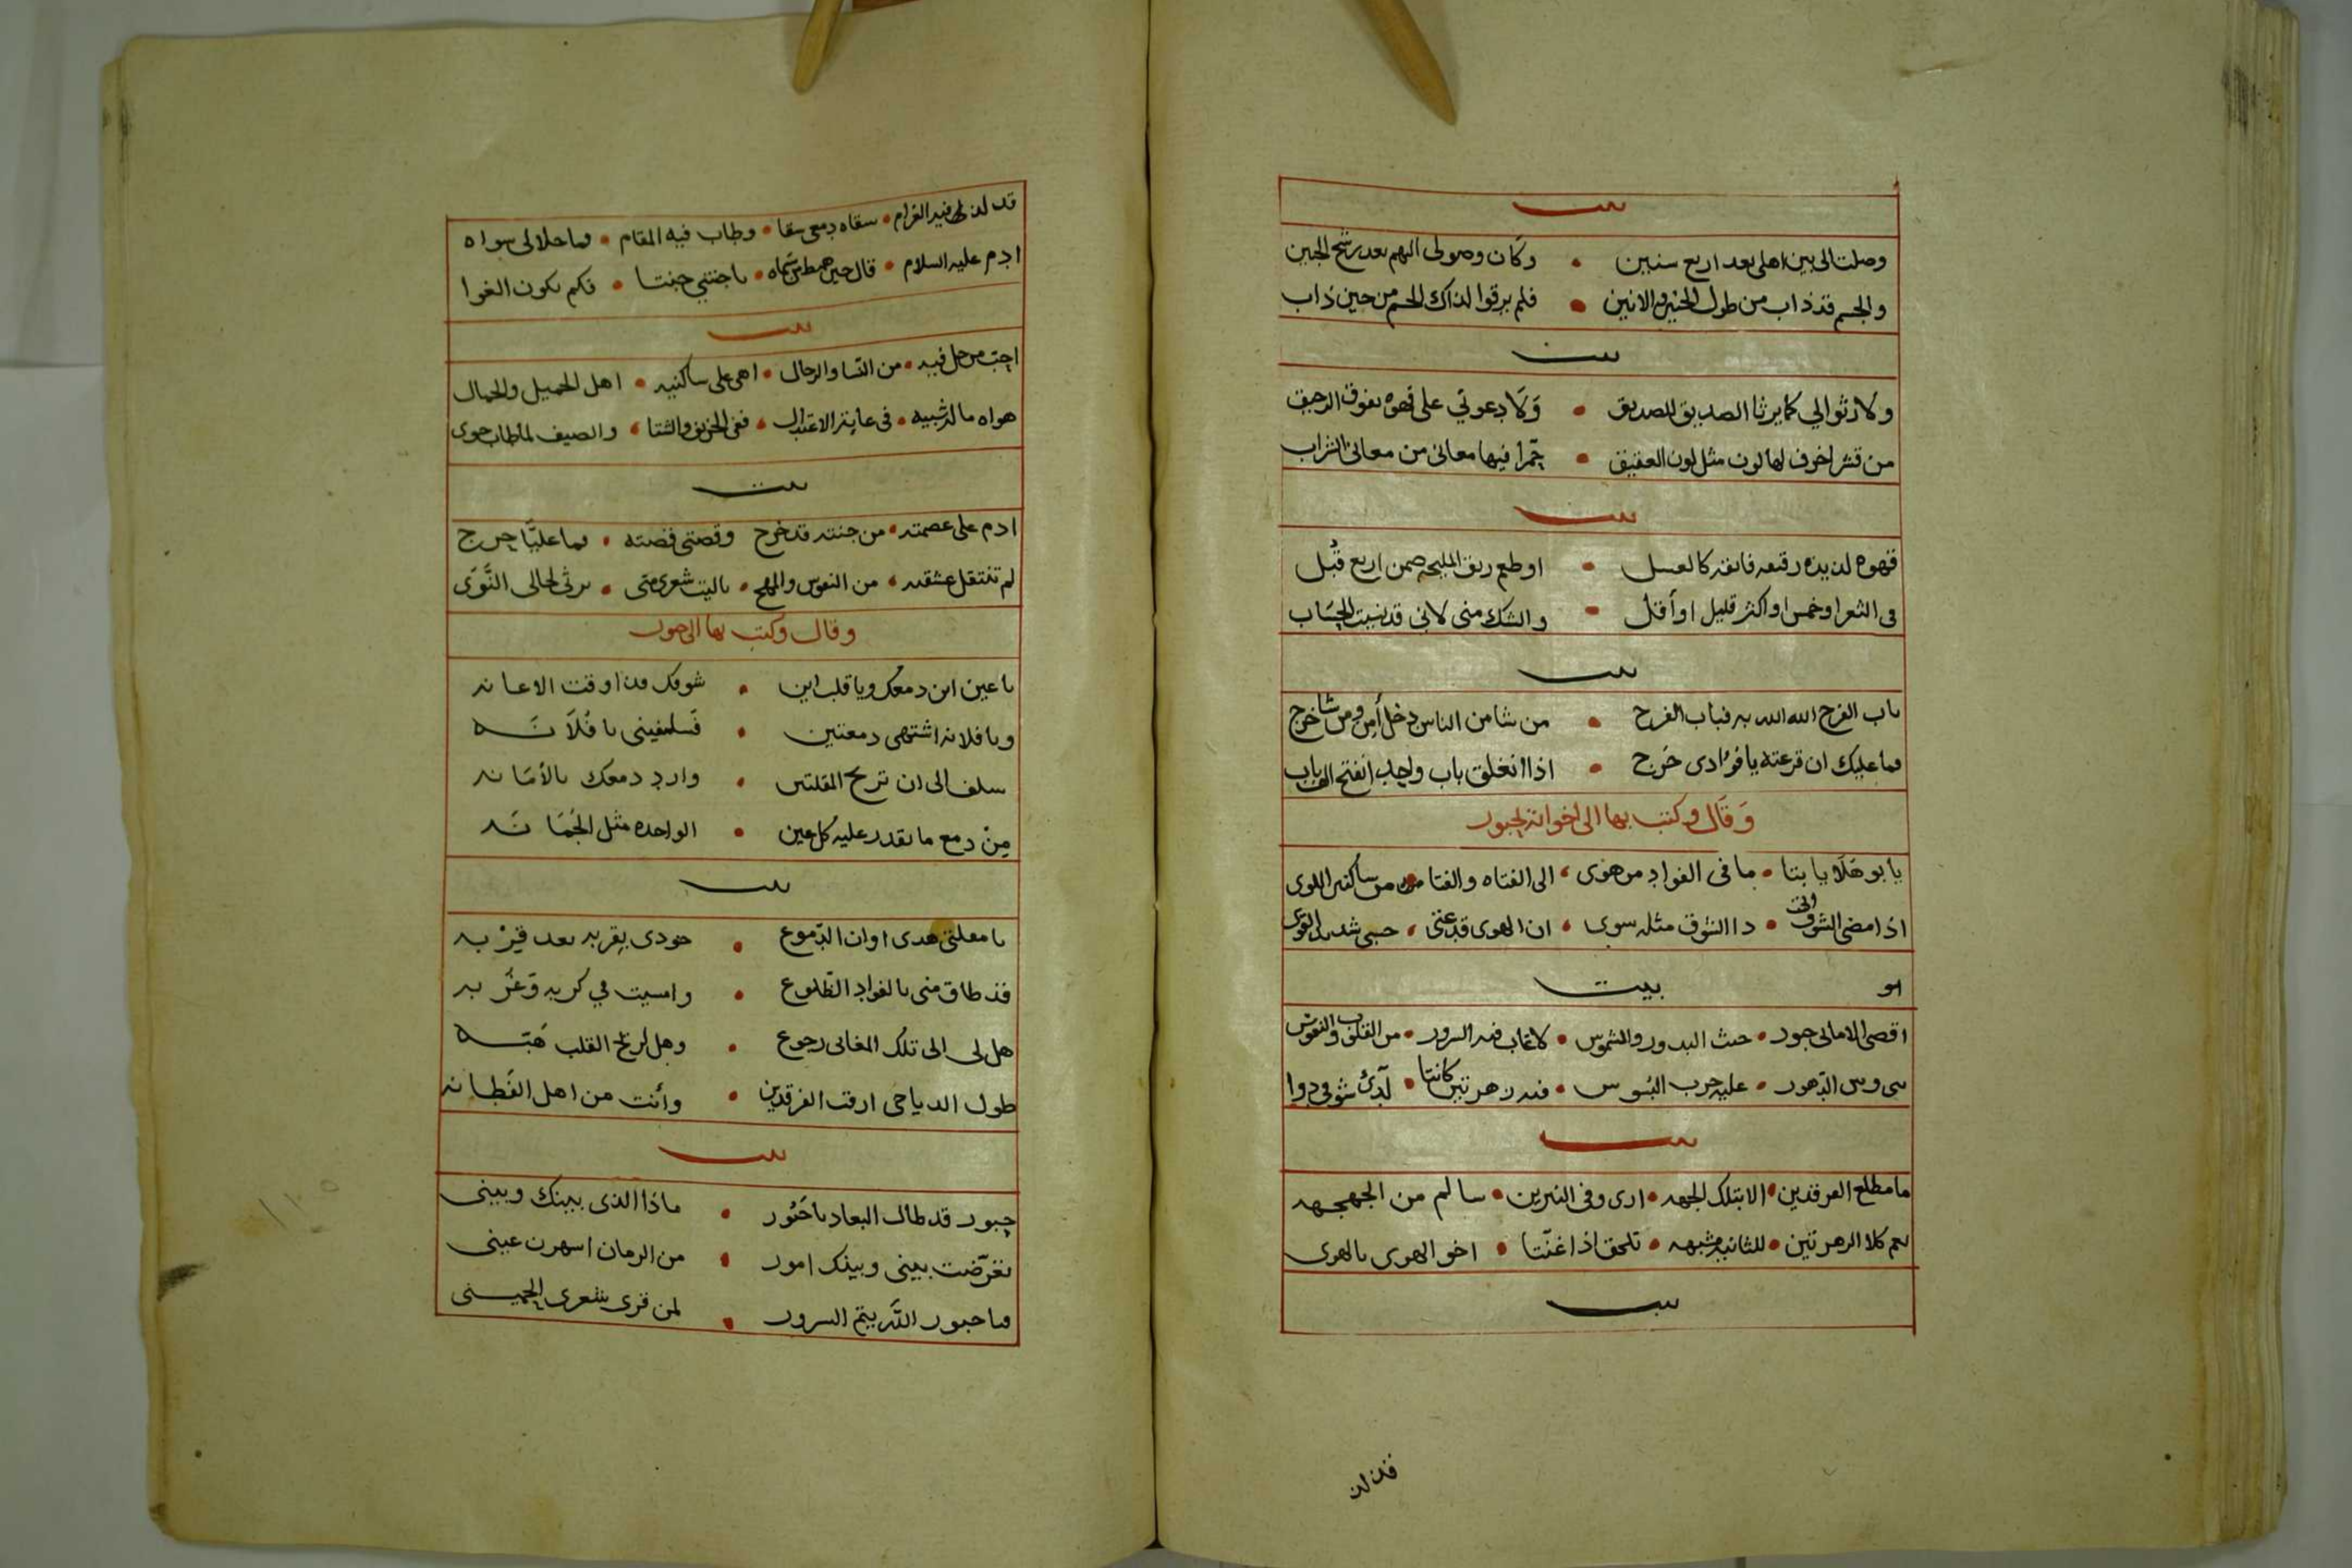 بيت
وصلت الى بين اهلى بعد اربع سنين • وكان وصولى اليهم بعد رشح الجبين
والجسم قد ذاب من طول الحنين والانين • فلم يرقوا لذاك الجسم من حين ذاب
بيت
ولا رثوا لي كما يرثا الصديق للصديق • وَلا دعوني على قهوه تفوق الرحيق
من قشر اخوف لها لون مثل لون العقيق • حمرا فيها معانى من معانى الشراب
بيت
قهوه لذيذه رقيقه فايقه كالعسل • او طعم ريق المليحه ضمن اربع قُبل
فى الثغر او خمس او اكثر قليل او أقل • والشك منى لانى قد نسيت الحِسَاب
بيت
باب الفرج الله الله به فباب الفرج • من شا من الناس دخل أمِن ومن شا خرج
وما عليك ان قرعته يا فؤادى حَرج • اذا انغلق باب واحد انفتح الف باب
وَقَال وكتب بها الى اخوانه لحبور
يا بو هَلا يا بتا • ما فى الفواد من هوى • الى الفتاه والفتا • من ساكنين اللوى
اذا مضى الشوق اتى • ذا الشوق مثله سوى • ان الهوى قد عتى • حسبى شديد القوى
بيت
اقصى الامانى حبور • حيث البدور والشموس • لا غاب فيه السرور • من القلوب والنفوس
عليه حرب البسوس • فيه زهرتين كانتا • لدى شوقى دوا
بيت
ما مطلع الفرقدين • الا بتلك الجهه • ارى وفى النيرين • سالم من الجهجهه
نعم كلا الزهرتين • للثانيه مشبهه • تلحق اذا غنّتا • اخو الهوى بالهوى
بيت
قد لذ
قد لذ لى فيه الغرام • سقاه دمعى سقا • وطاب فيه المقام • وما حلا لى سواه
ادم عليه السلام • قال حين هبط من سَماه • يا جنتي جنتا • فكم يكون الغوا
بيت
احِبّ من حل فيه • من النّسا والرجال • اهى على ساكنيه • اهل الجميل والجمال
هواه ما له شبيه • فى غاية الاعتدال • ففى الخريف والشتا • والصيف لما طاب جوى
بيت
ادم على عصمته • من جنته قد خرج وقصتى قصته • وما عليَّا حرج
لم تنتقل عشقته • من النفوس والمهج • ياليت شعرى متى • يرثى لحالى النَّوَى
وقال وكتب بها الى حبور
يا عين اين دمعك ويا قلب اين • شوقك فذا وقت الاعانه
ويا فلانه اشتهى دمعتين • فَسلفينى يا فُلَانَــه
سلف الى ان تريح المقلتين • وارد دمعك بالأمَانه
مِنْ دمع ما تقدر عليه كل عين • الواحده مثل الجُمَانَه
بيت
يا مقلتى هذى اوان الدّموع • جودى بقربه بعد قِرْبه
قد ضاق منى بالفواد الضّلوع • وامسيت في كربه وَغُرْبه
هل لى الى تلك المغانى رجوع • وهل لريح القلب هَبّــه
طول الدياجى ارقب الفرقدين • وأنت من اهل الفَطانه
بيت
حبور قد طال البعاد يا حَبُور • ماذا الذى بينك وبينى
تعرّضت بينى وبينك امور • من الزمان اسهرن عينى
وما حبور الله يتم السرور • لمن قرى شعرى الحمينــى